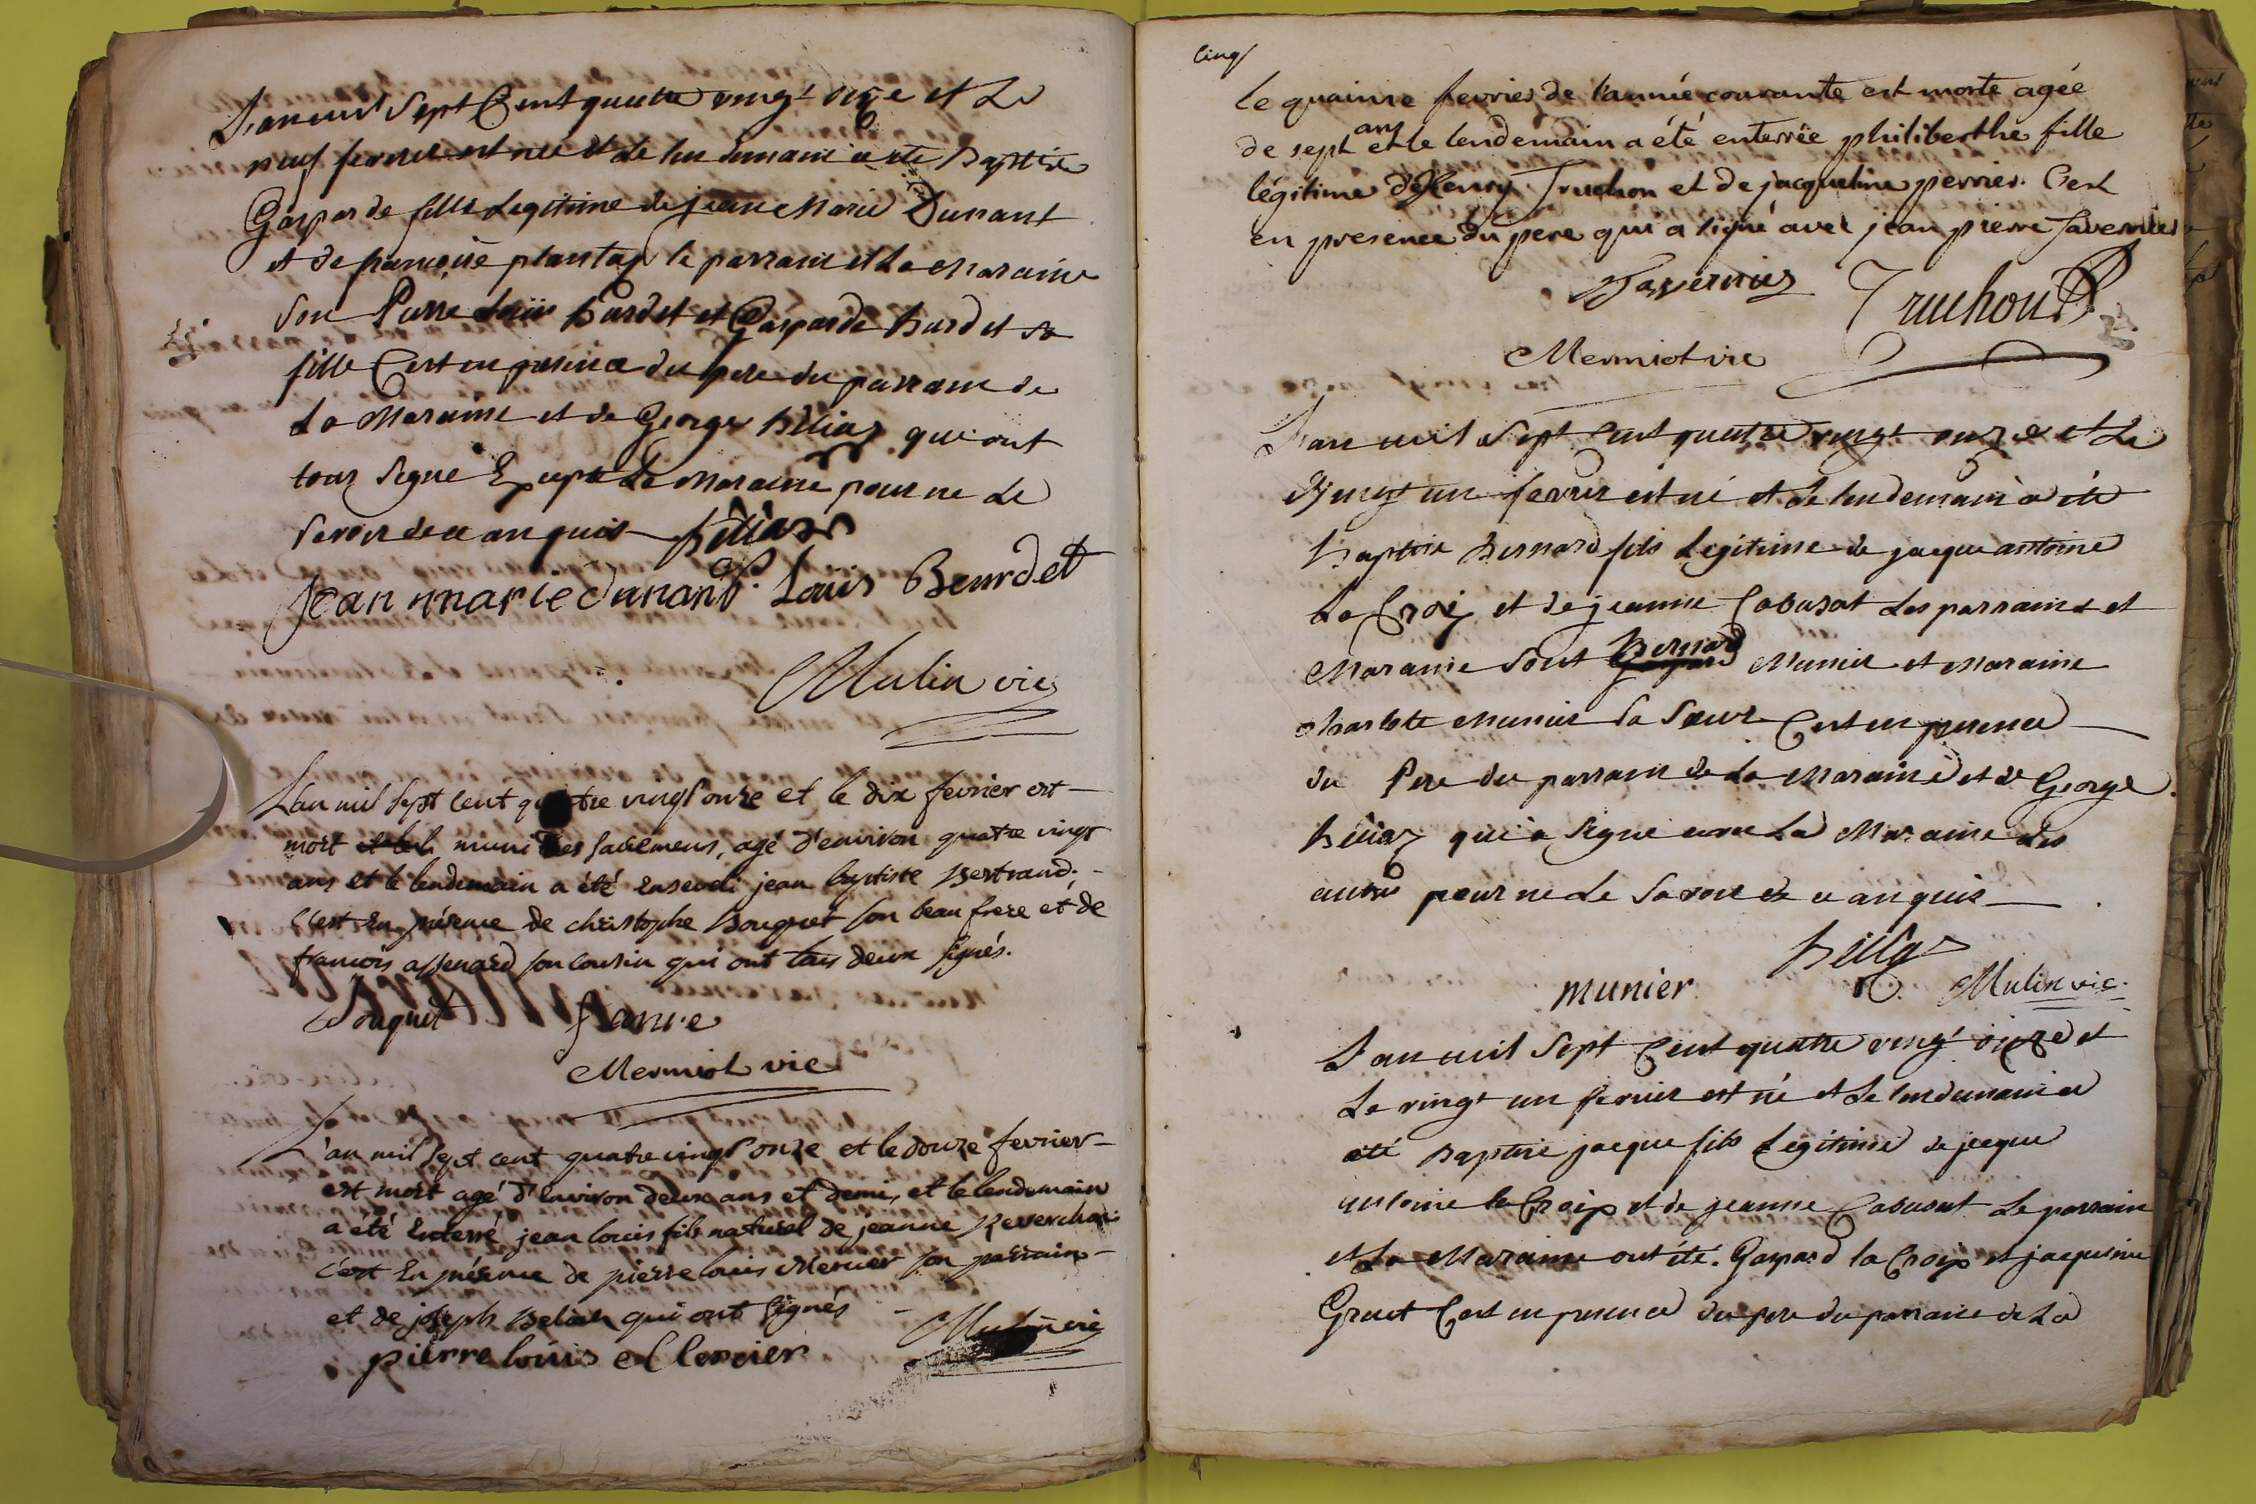 L'an mil sept cent quatre vingt onze et Le
neuf fevrier est née et Le lendemain a été Baptisée
Gasparde fille Legitime de jean Marie Dunant
et de françoise plantaz le parrain et La Maraine
Son Pierre Loüis Burdet et Gasparde Burdet sa
fille C'est en presence du pere du parrain de
La Maraine et de George Béliaz qui ont
tous Signé Excepté La Maraine pour ne Le
Savoir de ce anquis Béliaz
Jean marie dunant P. Louis Beurdet
Mulin vic
L'an mil sept cent quatre vingt onze et le dix fevrier est
mort muni des sacremens, agé d'environ quatre vingt
ans et le lendemain a été enseveli jean baptiste Bertrand.
C'est en présence de christophe Bouquet son beau frere et de
francois assenard son cousin qui ont tous deux signés.
Bouquet
Mermiot vic
L'an mil sept cent quatre vingt onze et le douze fevrier
est mort agé d'environ deux ans et demi, et le lendemain
a été enterré jean louis fils naturel de jeanne Reverchon
c'est en présence de pierre louis Mercier son parrain
et de joseph Beliah qui ont signés
Mulin vic
pierre louis Mercier
cinq
le quainse fevrier de l'année courante est morte agée
de sept ans et le lendemain a été enterrée philiberthe fille
légitime d'henry Truchon et de jacqueline perrier. C'est
en presence du pere qui a signé avec jean pierre Tavernier
Tavernier Truchon
Mermiot vic
L'an mil Sept Cent quatre vingt onze et Le
Vingt un fevrier est né et Le lendemain a été
Baptisé Bernard fils Legitime de jaque antoine
La Croix et de jeanne Cabusat Les parrains et
Maraine Sont Bernard Munier et Maraine
charlote Munier Sa Sœur C'est en presence
du Pere du parrain de La Maraine et de George
Béliaz qui a Signé avec La Maraine Les
autres pour ne Le Savoir de ce anquis
Béliaz
munier Mulin vic.
L'an mil Sept Cent quatre vingt onze et
Le vingt un fevrier est né et Le lendemain a
été Baptisé jaque fils Legitime de jaque
antoine la Croix et de jeanne Cabusat Le parrain
et La Maraine ont été. Gaspard la Croix et jaqueline
Gruet C'est en presence du pere du parrain de La